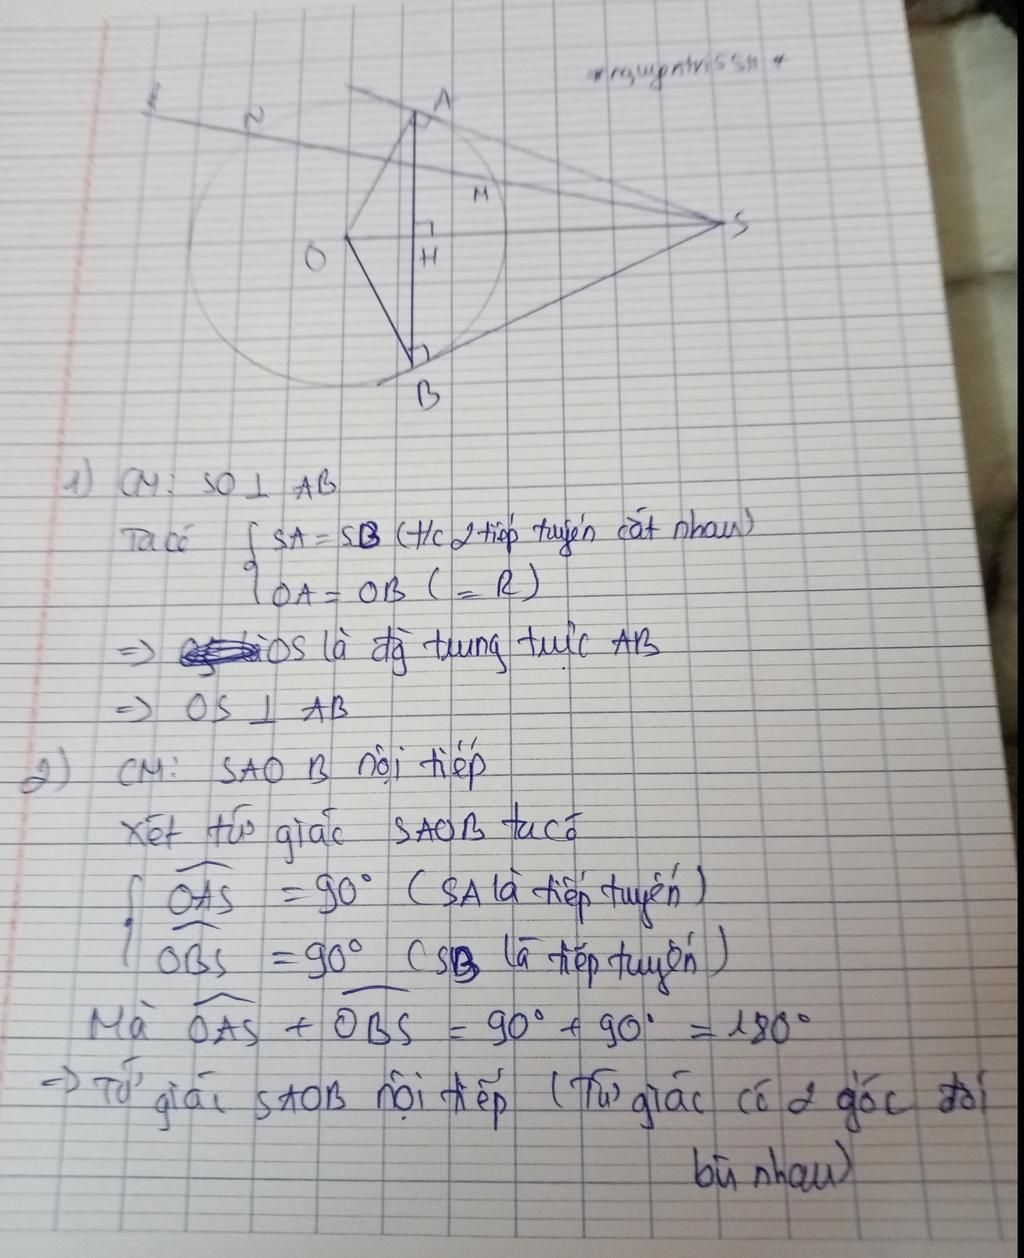 *nguyentrissh*
A
N
M
S
O
H
B
1) CM: SO ⊥ AB
Ta có { SA = SB (t/c 2 tiếp tuyến cắt nhau)
OA = OB (= R)
=> OS là đg trung trực AB
=> OS ⊥ AB
2) CM: SAOB nội tiếp
Xét tứ giác SAOB ta có
{ OAS = 90° (SA là tiếp tuyến)
OBS = 90° (SB là tiếp tuyến)
Mà OAS + OBS = 90° + 90° = 180°
=> Tứ giác SAOB nội tiếp (Tứ giác có 2 góc đối
bù nhau)